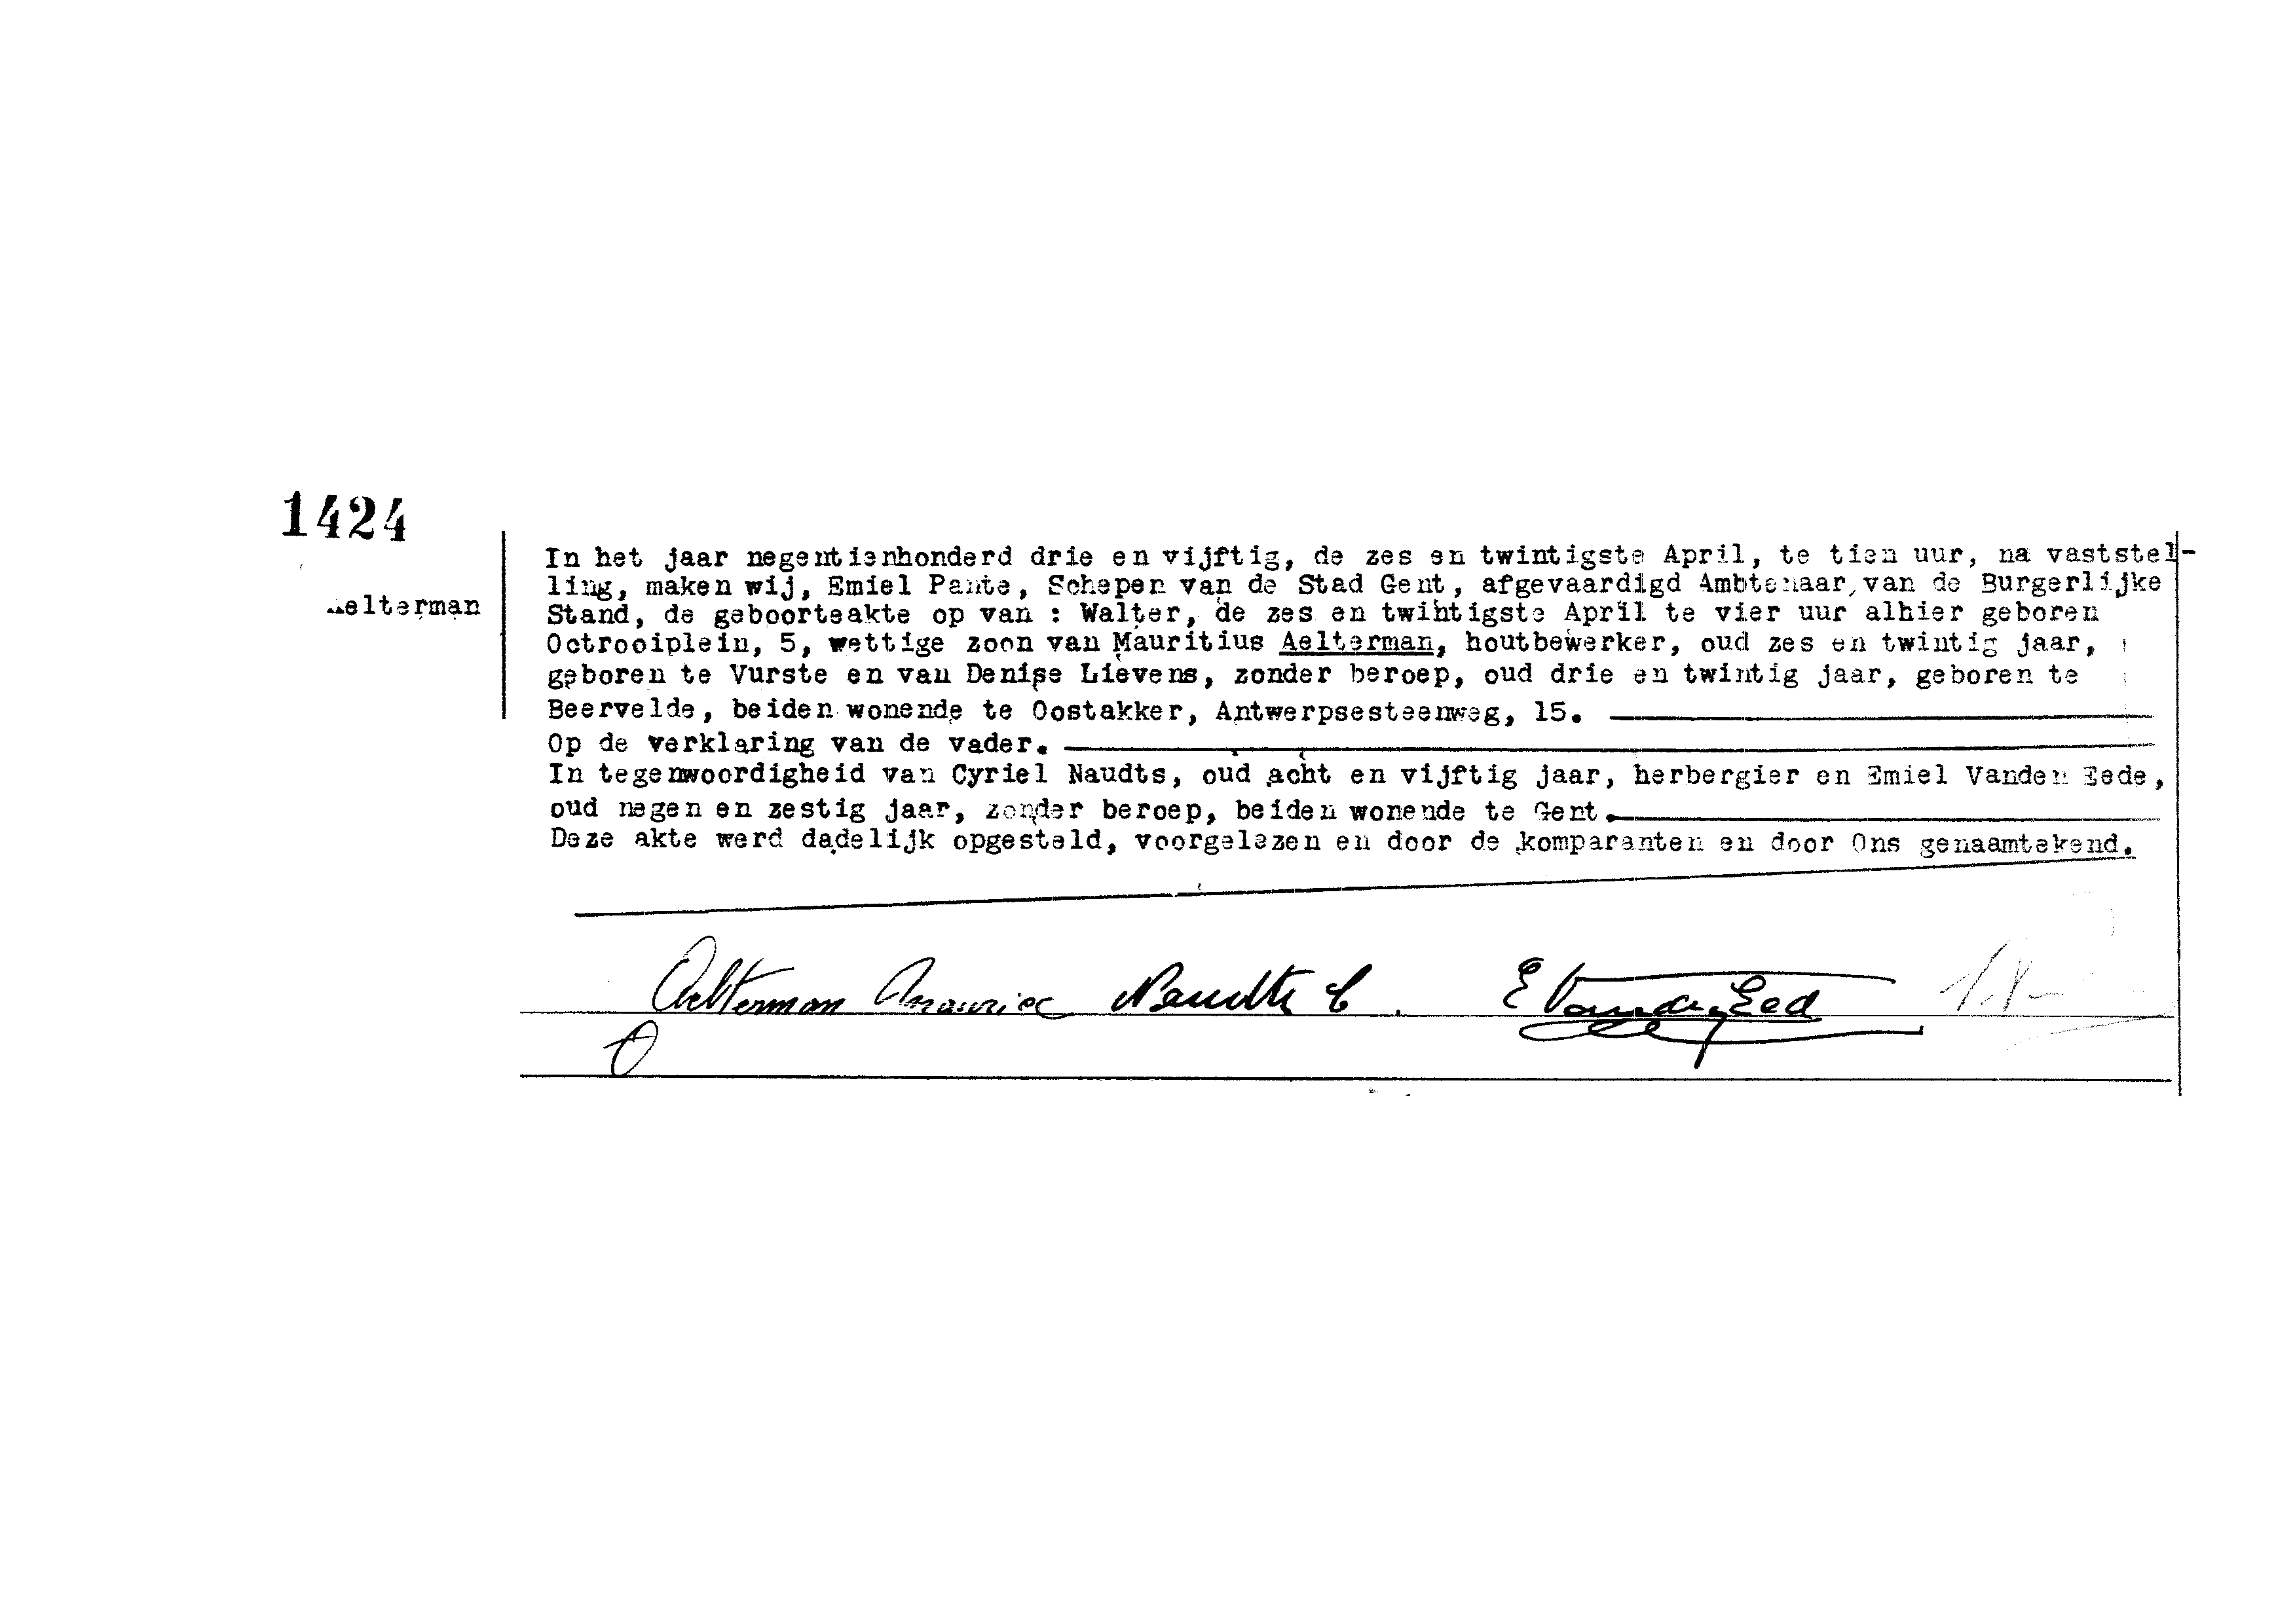 1424
In het jaar negentienhonderd drie en vijftig, de zes en twintigste April, te tien uur, na vaststel-
ling, maken wij, Emiel Pante, Schepen van de Stad Gent, afgevaardigd Ambtenaar van de Burgerlijke
Aelterman
Stand, de geboorteakte op van : Walter, de zes en twintigste April te vier uur alhier geboren
Octrooiplein, 5, wettige zoon van Mauritius Aelterman, houtbewerker, oud zes en twintig jaar,
geboren te Vurste en van Denise Lievens, zonder beroep, oud drie en twintig jaar, geboren te
Beervelde, beiden wonende te Oostakker, Antwerpsesteenweg, 15.
Op de verklaring van de vader.
In tegenwoordigheid van Cyriel Naudts, oud acht en vijftig jaar, herbergier en Emiel Vanden Eede,
oud negen en zestig jaar, zonder beroep, beiden wonende te Gent.
Deze akte werd dadelijk opgesteld, voorgelezen en door de komparanten en door Ons genaamtekend.
Aelterman Maurice Naudts C. E Vanden Eed